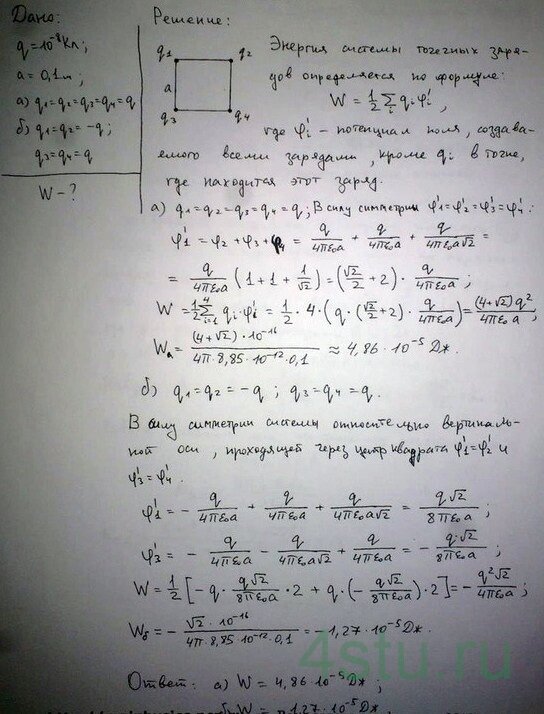 Дано:
q = 10⁻⁸ Кл;
a = 0,1 м;
а) q₁ = q₂ = q₃ = q₄ = q
б) q₁ = q₂ = -q;
q₃ = q₄ = q
W - ?
Решение:
q₁ q₂
a
q₃ q₄
Энергия системы точечных заря-
дов определяется по формуле:
W = 1/2 ∑ᵢ qᵢφᵢ',
где φᵢ' - потенциал поля, создава-
емого всеми зарядами, кроме qᵢ в точке,
где находится этот заряд.
а) q₁ = q₂ = q₃ = q₄ = q; В силу симметрии φ'₁ = φ'₂ = φ'₃ = φ'₄.
φ'₁ = φ₂ + φ₃ + φ₄ = q/4πε₀a + q/4πε₀a + q/4πε₀a√2 =
= q/4πε₀a (1 + 1 + 1/√2) = (√2/2 + 2) · q/4πε₀a;
W = 1/2 ∑ᵢ₌₁⁴ qᵢ·φᵢ' = 1/2 · 4 · (q · (√2/2 + 2) · q/4πε₀a) = (4+√2)q²/4πε₀a;
Wₐ = (4+√2)·10⁻¹⁶/4π·8,85·10⁻¹²·0,1 ≈ 4,86·10⁻⁵ Дж.
б) q₁ = q₂ = -q; q₃ = q₄ = q.
В силу симметрии системы относительно вертикаль-
ной оси, проходящей через центр квадрата φ'₁ = φ'₂ и
φ'₃ = φ'₄.
φ'₁ = - q/4πε₀a + q/4πε₀a + q/4πε₀a√2 = q√2/8πε₀a;
φ'₃ = - q/4πε₀a - q/4πε₀a√2 + q/4πε₀a = - q√2/8πε₀a;
W = 1/2 [-q · q√2/8πε₀a · 2 + q · (- q√2/8πε₀a) · 2] = - q²√2/4πε₀a;
Wб = - √2·10⁻¹⁶/4π·8,85·10⁻¹²·0,1 = -1,27·10⁻⁵ Дж.
4stu.ru
Ответ: а) W = 4,86·10⁻⁵ Дж;
б) W = -1,27·10⁻⁵ Дж.